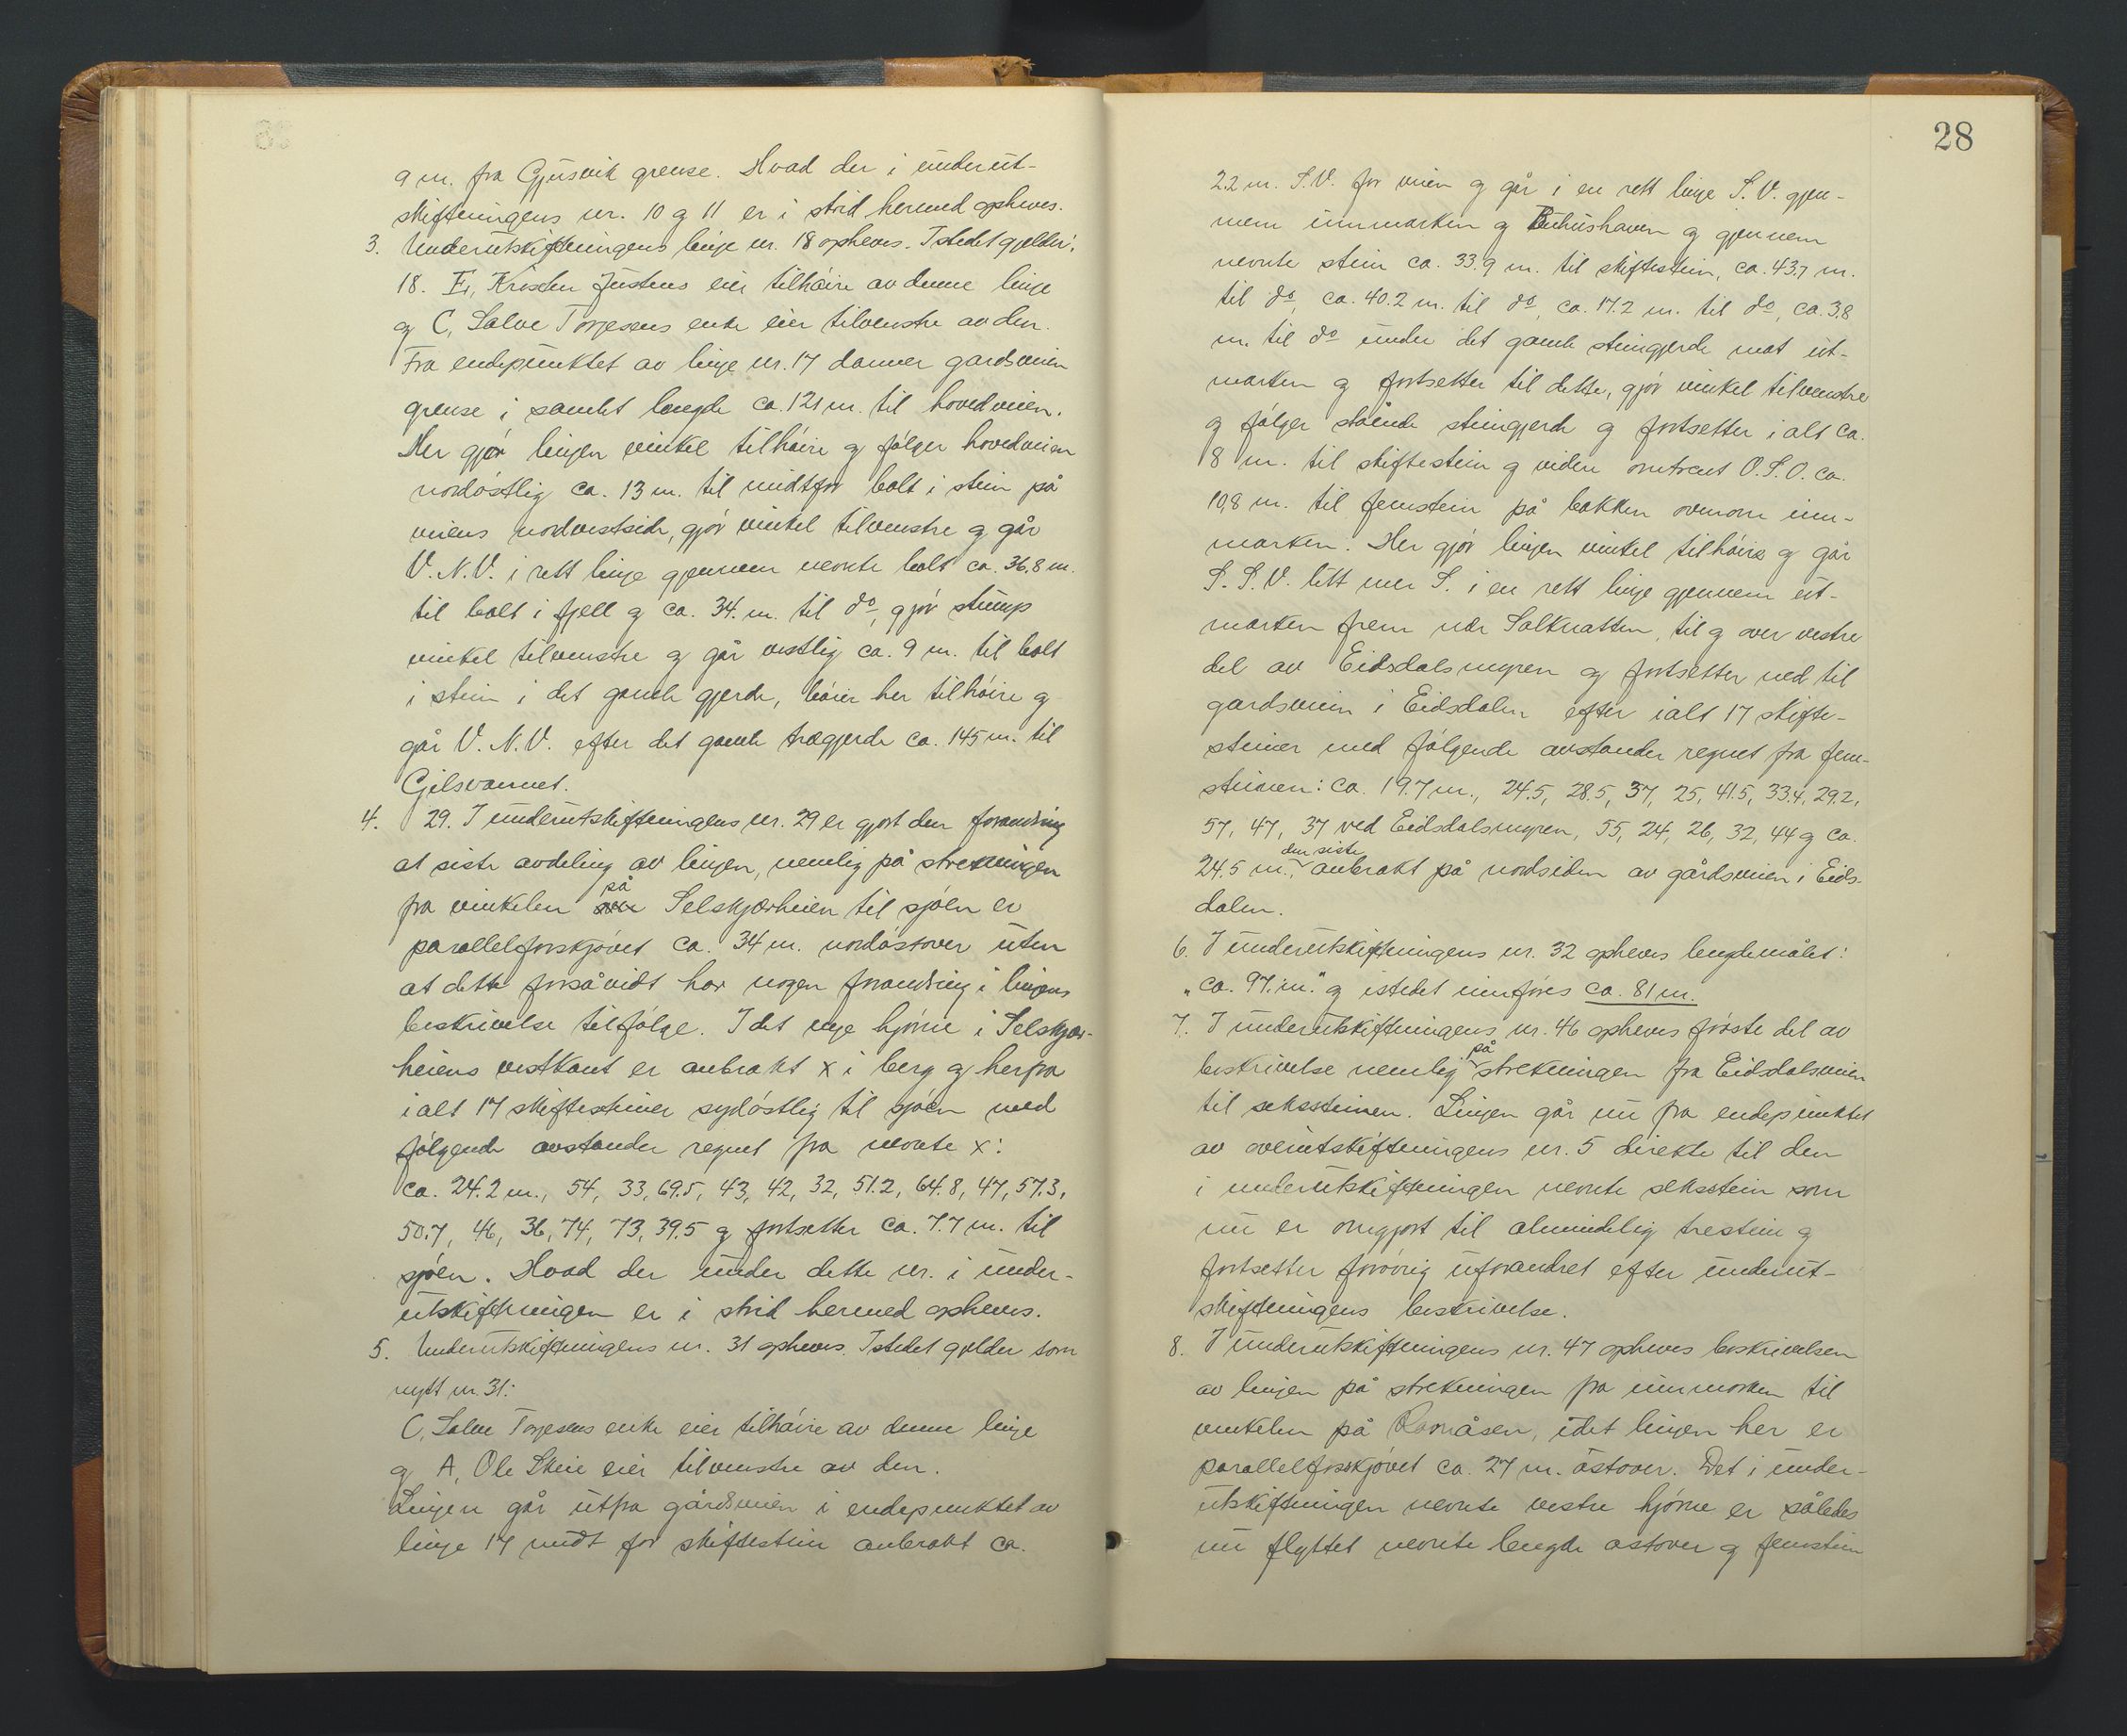 9 m. fra Gjusvik grense. Hvad der i underut-
skiftningens nr. 10 og 11 er i strid hermed opheves.
3. Underutskiftningens linje nr. 18 opheves. Istedet gjelder:
18. E, Kristen Justens eier tilhøire av denne linje
og C, Salve Torjesens enke eier tilvenstre av den.
Fra endepunktet av linje nr. 17 danner gardsveien
grense i samlet lengde ca. 121 m. til hovedveien.
Her gjør linjen vinkel tilhøire og følger hovedveien
nordøstlig ca. 13 m. til midtfor bolt i stein på
veiens nordvestside, gjør vinkel tilvenstre og går
V.N.V. i rett linje gjennem nevnte bolt ca. 36,8 m.
til bolt i fjell og ca. 34. m. til do, gjør stump
vinkel tilvenstre og går vestlig ca. 9 m. til bolt
i stein i det gamle gjerde, bøier her tilhøire og
går V.N.V. efter det gamle trægjerde ca. 145 m. til
Gilsvannet.
4. 29. I underutskiftningens nr. 29 er gjort den forandring
at siste avdeling av linjen, nemlig på strekningen
fra vinkelen på Selskjærheien til sjøen er
parallelforskjøvet ca. 34 m. nordøstover uten
at dette forsåvidt har nogen forandring i linjens
beskrivelse tilfølge. I det nye hjørne i Selskjær-
heiens vestkant er anbrakt x i berg og herfra
ialt 17 skiftesteiner sydøstlig til sjøen med
følgende avstander regnet fra nevnte x:
ca. 24.2 m., 54, 33, 69.5, 43, 42, 32, 51.2, 64.8, 47, 57.3,
50.7, 46, 36, 74, 73, 39.5 og fortsetter ca. 7.7 m. til
sjøen. Hvad der under dette nr. i under-
utskiftningen er i strid hermed opheves.
5. Underutskiftningens nr. 31 opheves. Istedet gjelder som
nytt nr. 31:
C, Salve Torjesens enke eier tilhøire av denne linje
og A, Ole Skeie eier tilvenstre av den.
Linjen går utfra gårdsveien i endepunktet av
linje 17 midt for skiftestein anbrakt ca.
28
2.2 m. S.V. for veien og går i en rett linje S.V. gjen-
nem innmarken og og gjennem
nevnte stein ca. 33.9 m. til skiftestein, ca. 43.7 m.
til do, ca. 40.2 m. til do, ca. 17.2 m. til do, ca. 3.8
m. til do under det gamle steingjerde mot ut-
marken og fortsetter til dette, gjør vinkel tilvenstre
og følger stående steingjerde og fortsetter ialt ca.
8 m. til skiftestein og videre omtrent O.S.O. ca.
10,8 m. til femstein på bakken ovenom inn-
marken. Her gjør linjen vinkel tilhøire og går
S.S.V. litt mer S. i en rett linje gjennem ut-
marken frem nær Salknatten, til og over vestre
del av Eidsdalsmyren og fortsetter ned til
gardsveien i Eidsdalen efter ialt 17 skifte-
steiner med følgende avstander regnet fra fem-
steinen: ca. 19.7 m., 24.5, 28.5, 37, 25, 41.5, 33.4, 29.2,
57, 47, 37 ved Eidsdalsmyren, 55, 24, 26, 32, 44 og ca.
24.5 m., den siste anbrakt på nordsiden av gårdsveien i Eids-
dalen.
6. I underutskiftningens nr. 32 opheves lengdemålet:
"ca. 97. m." og istedet innføres ca. 81 m.
7. I underutskiftningens nr. 46 opheves første del av
beskrivelse nemlig på strekningen fra Eidsdalsveien
til seksteinen. Linjen går nu fra endepunktet
av overutskiftningens nr. 5 direkte til den
i underutskiftningen nevnte seksstein som
nu er omgjort til almindelig trestein og
fortsetter forøvrig uforandret efter underut-
skiftningens beskrivelse.
8. I underutskiftningens nr. 47 opheves beskrivelsen
av linjen på strekningen fra innmarken til
vinkelen på, idet linjen her er
parallelforskjøvet ca. 27 m. østover. Det i under-
utskiftningen nevnte vestre hjørne er således
nu flyttet nevnte lengde østover og femstein